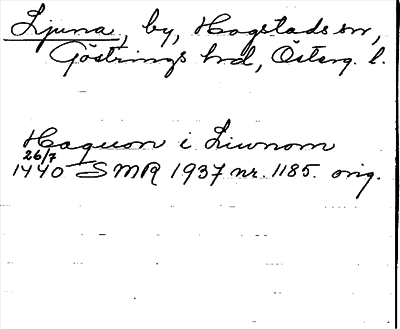 Ljuna, by, Hogstads sn,
Göstrings hd, Österg. l.
Haquon i Liunom
26/7
1440 SMR 1937 nr. 1185. orig.